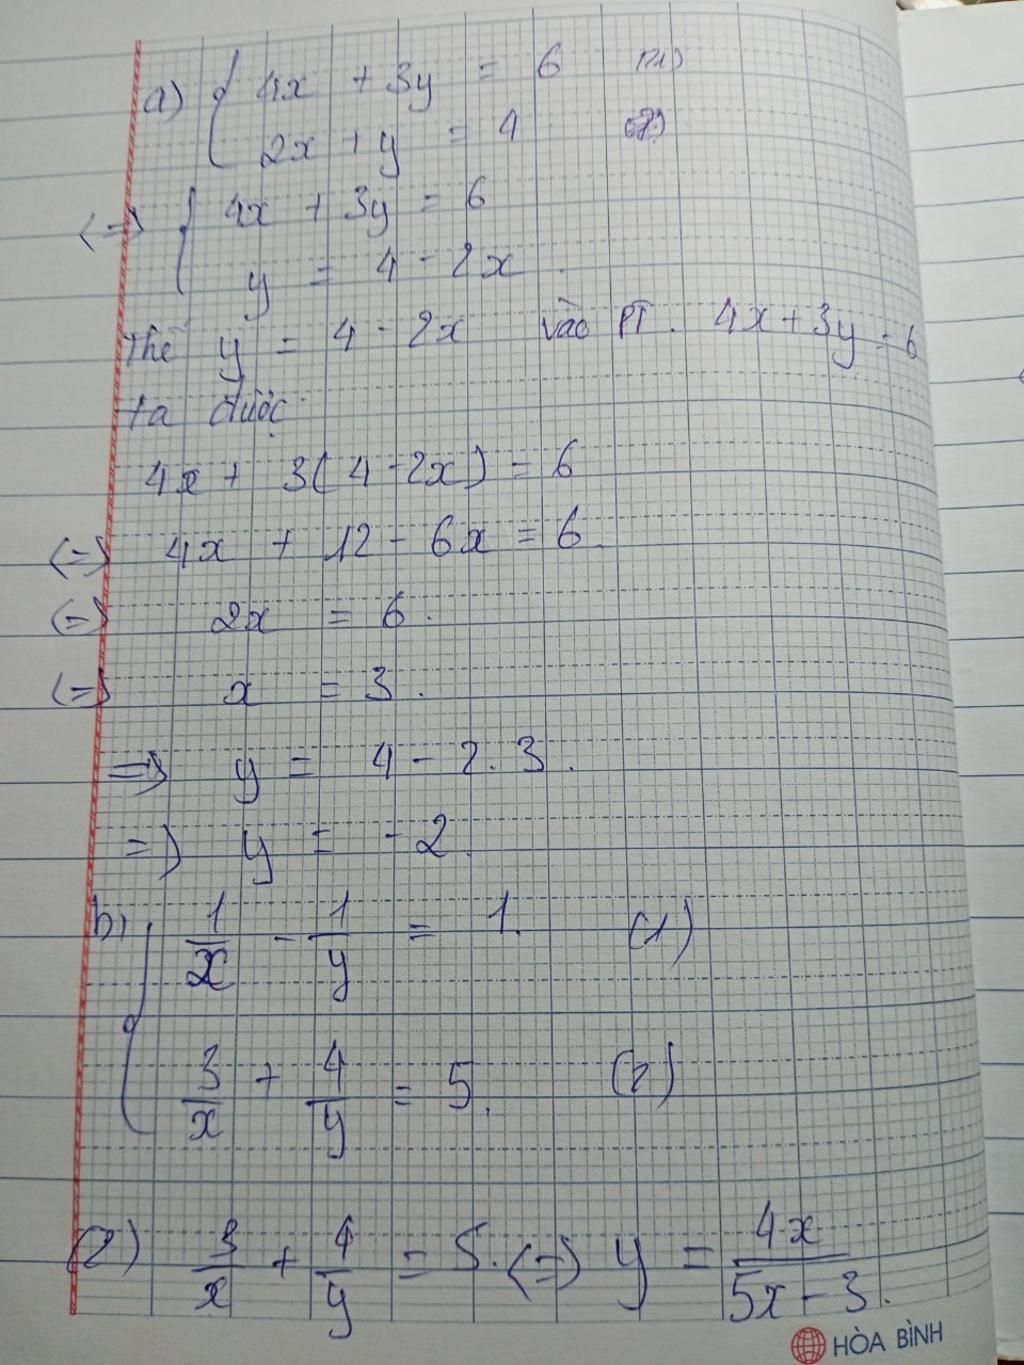 a) { 4x + 3y = 6 (1)
2x + y = 4 (2)
<=> { 4x + 3y = 6
y = 4 - 2x
Thế y = 4 - 2x vào PT . 4x + 3y = 6
ta được
4x + 3(4 - 2x) = 6
<=> 4x + 12 - 6x = 6
<=> 2x = 6 .
<=> x = 3 .
=> y = 4 - 2 . 3 .
=> y = -2 .
b) { 1/x - 1/y = 1 . (1)
3/x + 4/y = 5 . (2)
(2) 3/x + 4/y = 5 . <=> y = 4x/(5x - 3) .
HÒA BÌNH